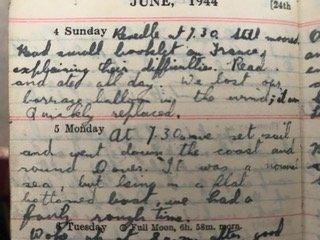 JUNE, 1944 [24th
4 Sunday Reveille at 7.30. Still moored.
Read small booklet on France,
explaining their difficulties. Read
and ate all day. We lost our
barrage balloon in the wind;
Quickly replaced.
5 Monday At 7.30 we set sail,
and went down the coast and
round Dover. It was a normal
sea, but being in a flat
bottomed boat, we had a
fairly rough time.
6 Tuesday Full Moon, 6h. 58m. morn.